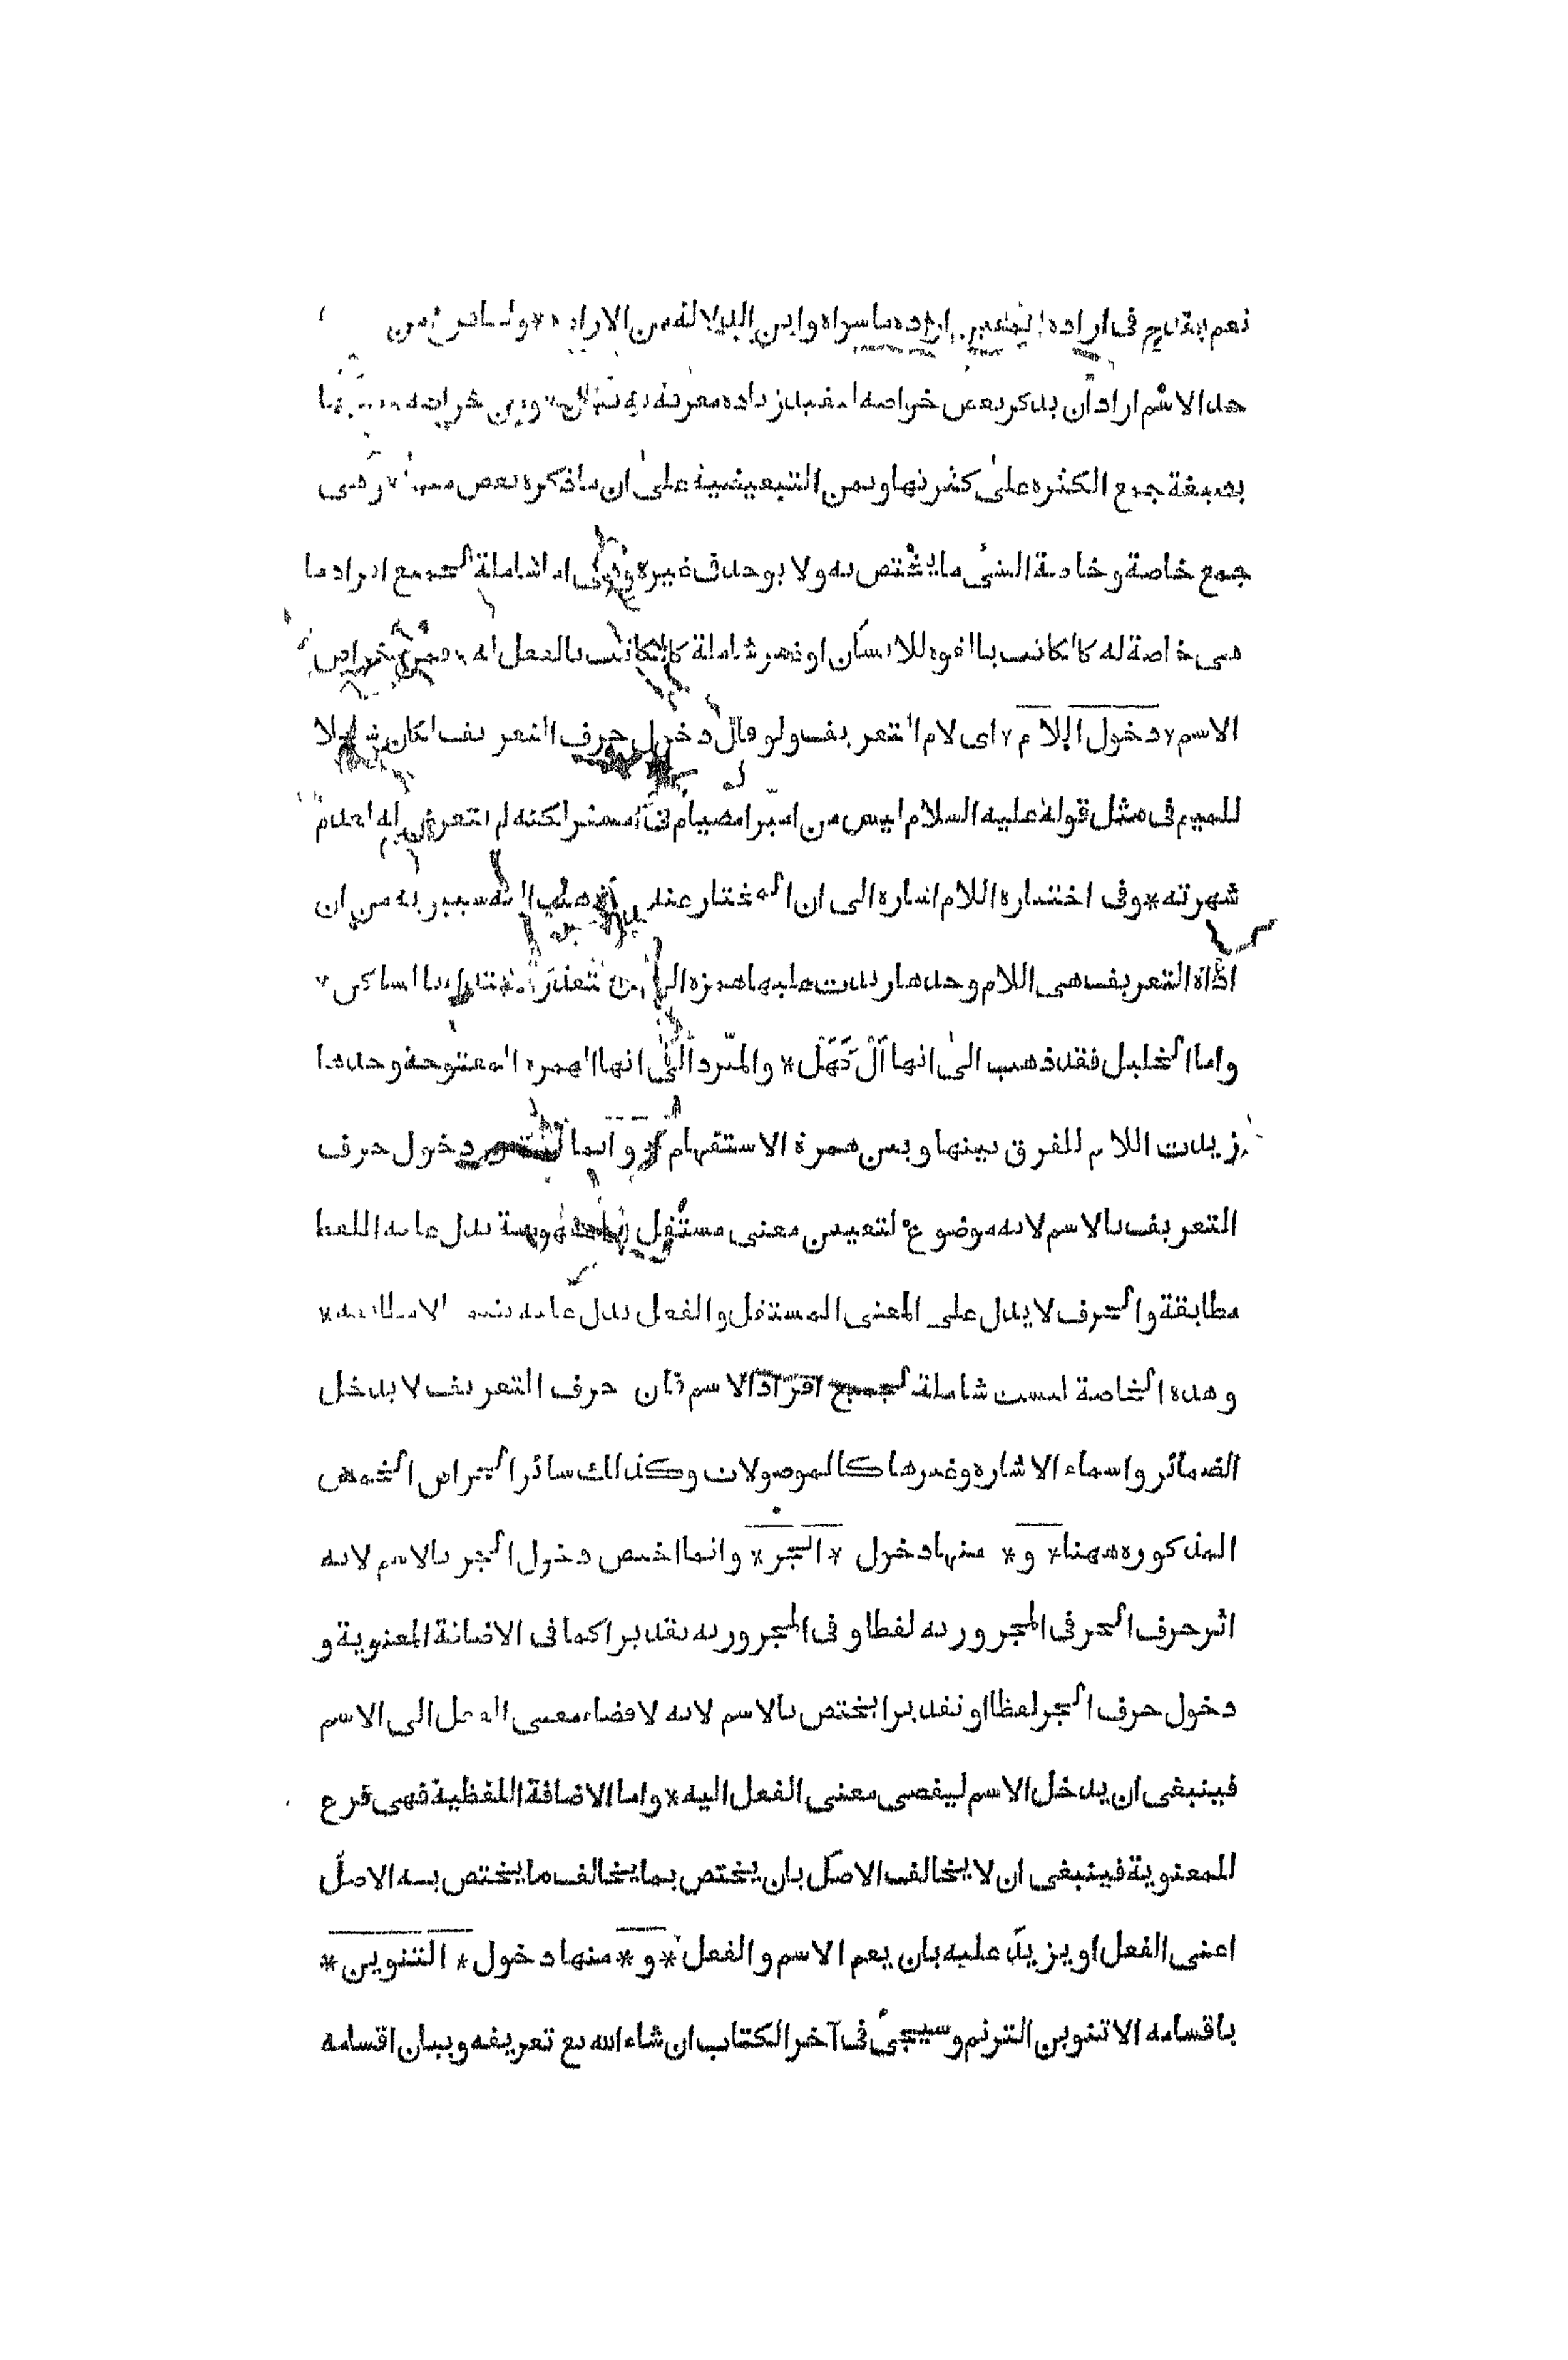 نعم بقدح فى ارادة المتعين ارادة ما سواه واين الدلالة من الارادة * ولما فرغ من
حد الاسم اراد ان يذكر بعض خواصه ليفيد زيادة معرفة به فقال * ومن خواصه
بصيغة جمع الكثرة على كثرتها وبمن التبعيضية على ان ما ذكره بعض منها وهى
جمع خاصة وخاصة الشئ ما يختص به ولا يوجد فى غيره وهى اما شاملة لجميع افراد ما
هى خاصة له كالكاتب بالقوة للانسان او غير شاملة كالكاتب بالفعل له فمن خواص
الاسم * دخول اللام * اى لام التعريف ولو قال دخول حرف التعريف لكان شاملا
للميم فى مثل قوله عليه السلام ليس من امبر امصيام فى امسفر لكنه لم يتعرض له لعدم
شهرته * وفى اختياره اللام اشارة الى ان المختار عنده ما ذهب اليه سيبويه من ان
اداة التعريف هى اللام وحدها زيدت عليها همزة الوصل لتعذر الابتداء بالساكن *
واما الخليل فقد ذهب الى انها اَلْ كَهَلْ * والمبرد الى انها الهمزة المفتوحة وحدها
زيدت اللام للفرق بينها وبين همزة الاستفهام * وانما اختص دخول حرف
التعريف بالاسم لانه موضوع لتعيين معنى مستقل بالمفهومية يدل عليه اللفظ
مطابقة والحرف لا يدل على المعنى المستقل والفعل يدل عليه تضمنا لا مطابقة *
وهذه الخاصة ليست شاملة لجميع افراد الاسم فان حرف التعريف لا يدخل
الضمائر واسماء الاشارة وغيرها كالموصولات وكذلك سائر الخواص الخمس
المذكورة ههنا * و * منها دخول * الجر * وانما اختص دخول الجر بالاسم لانه
اثر حرف الجر فى المجرور به لفظا وفى المجرور به تقديرا كما فى الاضافة المعنوية و
دخول حرف الجر لفظا او تقديرا يختص بالاسم لانه لافضاء معنى الفعل الى الاسم
فينبغى ان يدخل الاسم ليفضى معنى الفعل اليه * واما الاضافة اللفظية فهى فرع
للمعنوية فينبغى ان لا يخالف الاصل بان يختص بما يخالف ما يختص به الاصل
اعنى الفعل او يزيد عليه بان يعم الاسم والفعل * و * منها دخول * التنوين *
باقسامه الا تنوين الترنم وسيجئ فى آخر الكتاب ان شاء الله تع تعريفه وبيان اقسامه